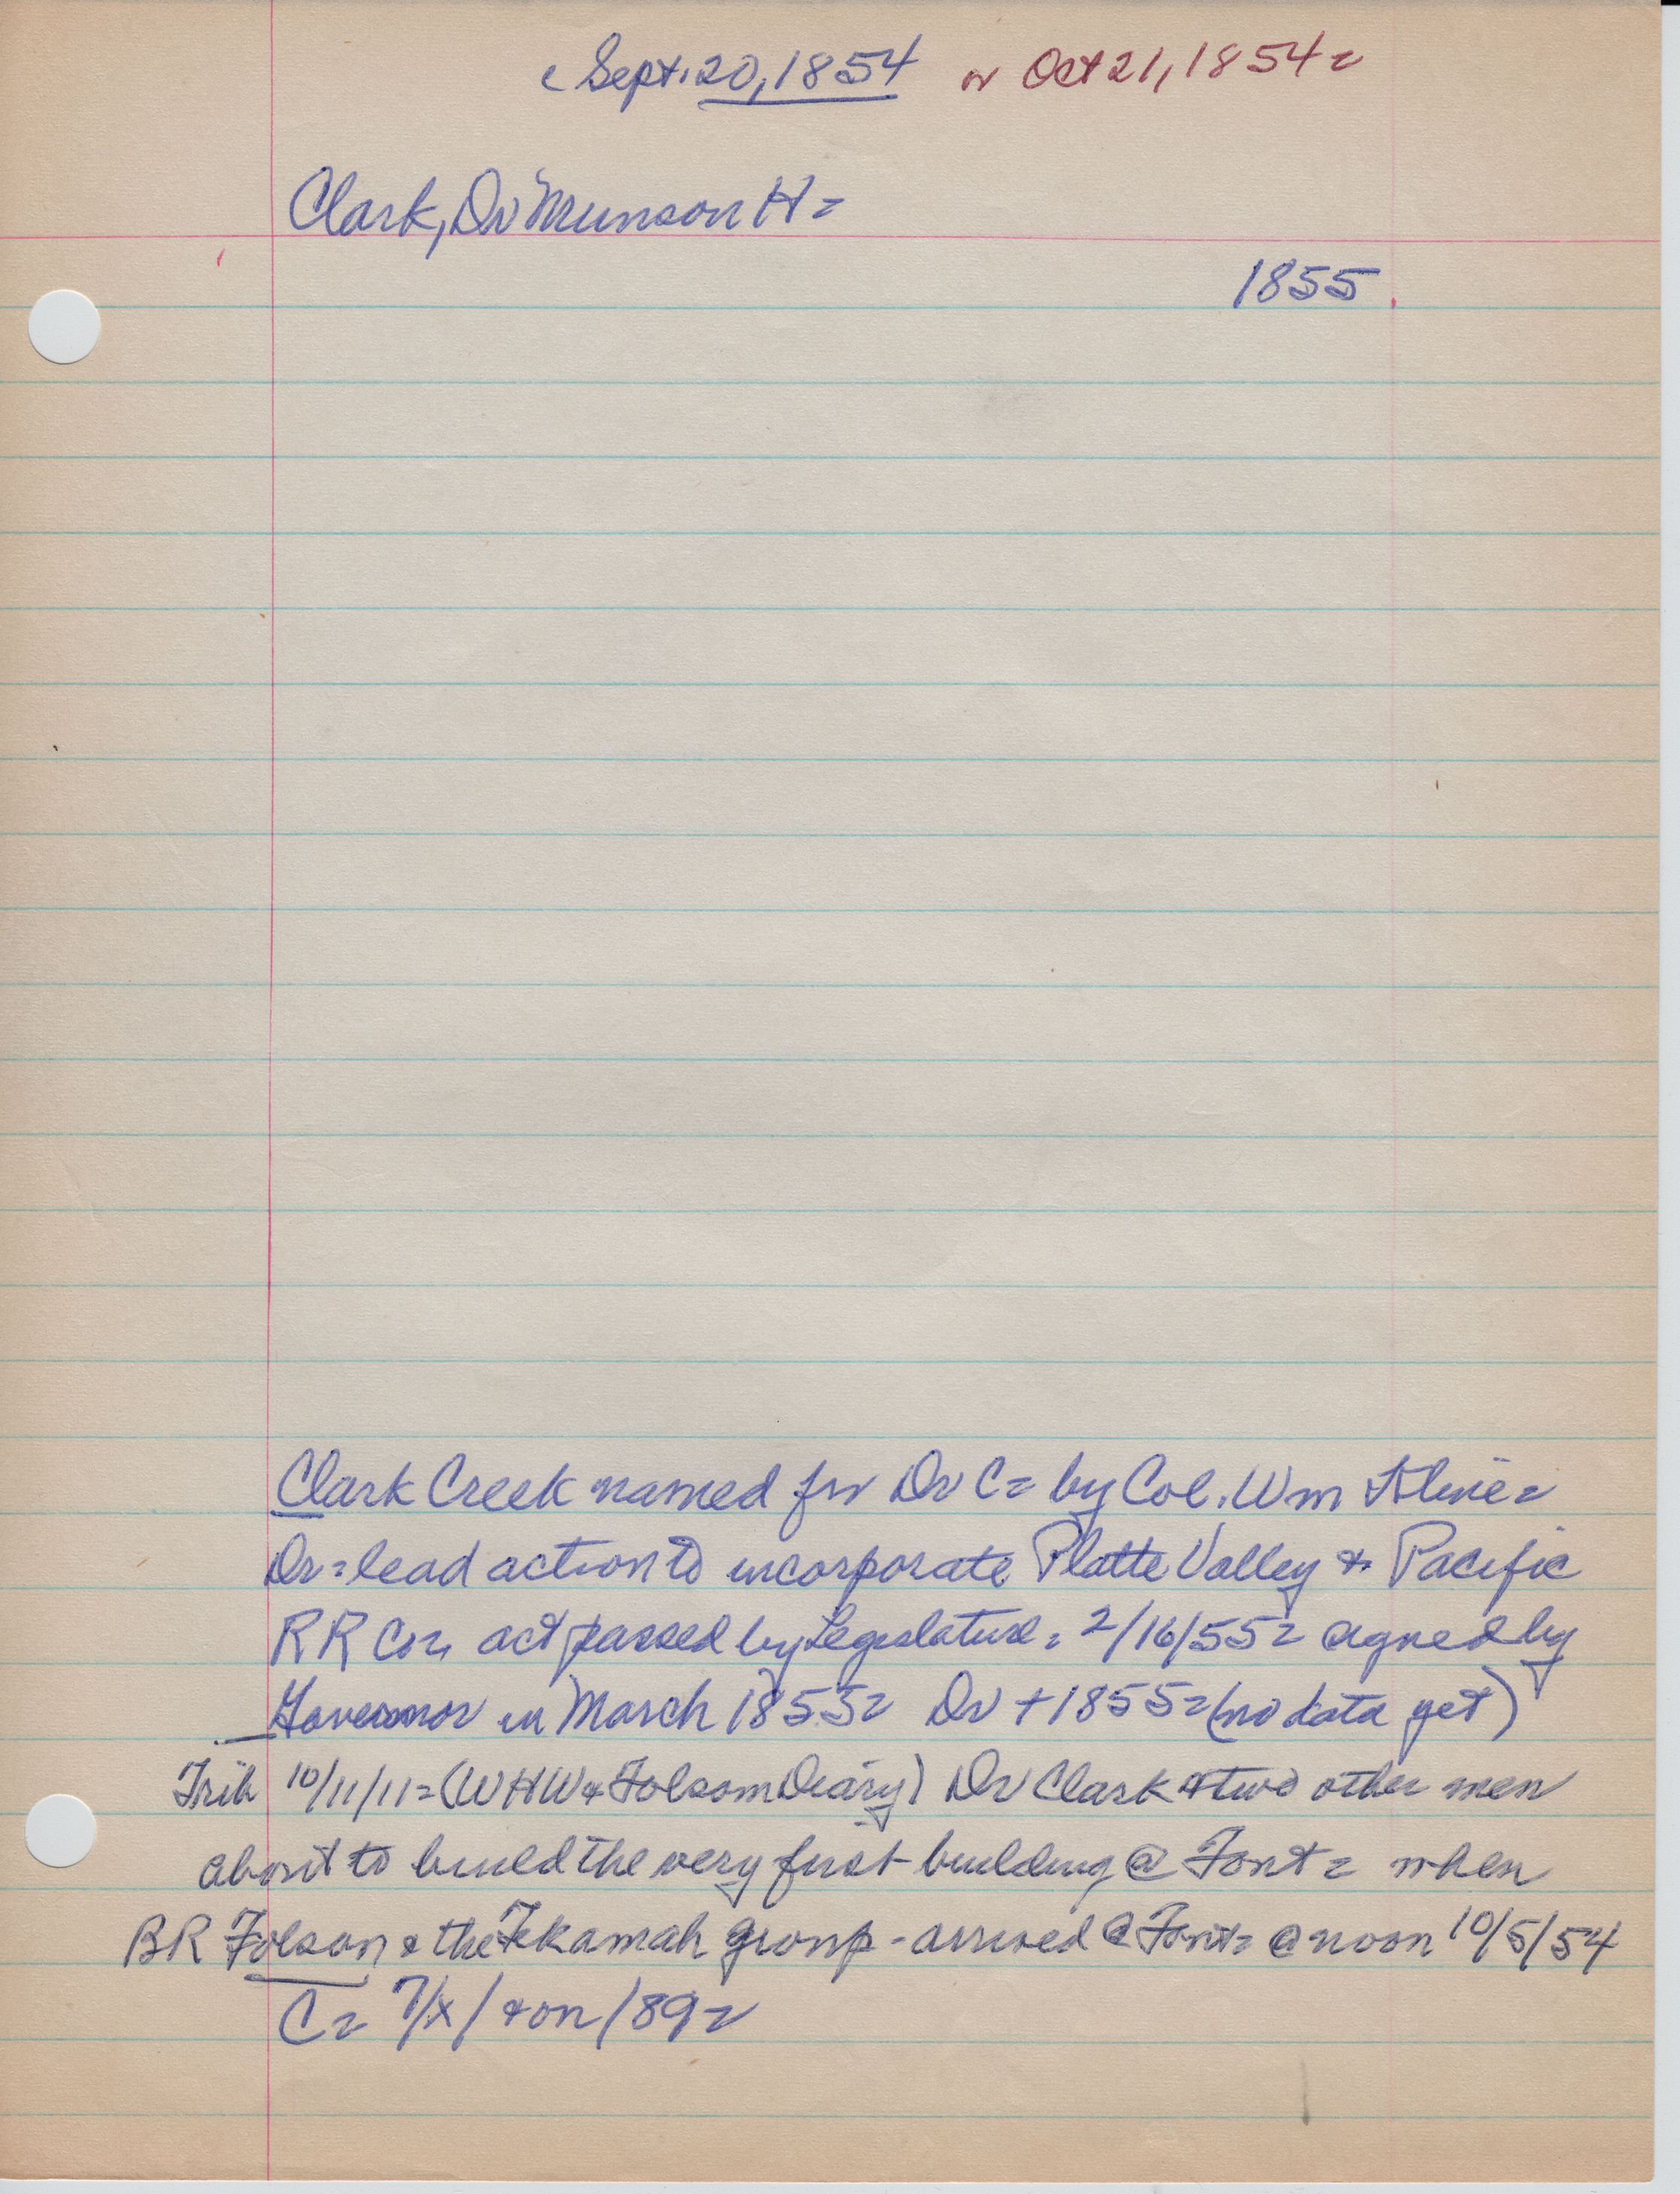 c Sept. 20, 1854 or Oct 21, 1854=
Clark, Dr Munson H=
1855
Clark Creek named for Dr C= by Col. Wm Kline=
Dr= lead action to incorporate Platte Valley & Pacific
RR Co=, act passed by Legislature, 2/16/55= signed by
Governor in March 1855= Dr + 1855= (no data yet)
Trib 10/11/11= (WHW & Folsom Diary) Dr Clark & two other men
about to build the very first building @ Font= when
BR Folsom & the Tekamah group - arrived @ Font= @ noon 10/5/54
C= 7/x/ & on /89=